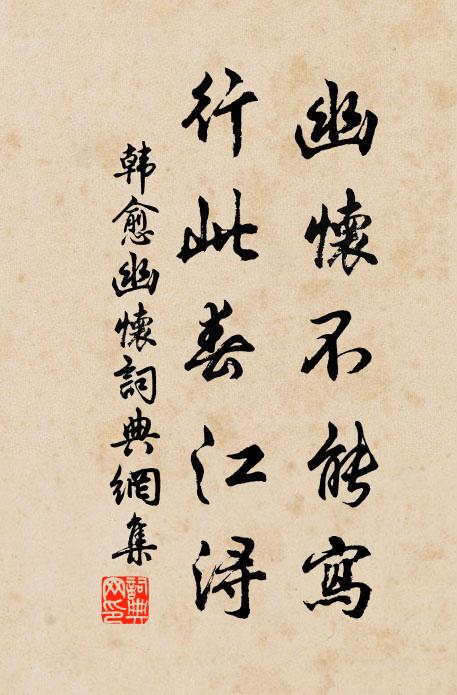 幽懷不能寫
行此春江潯
韓愈幽懷詞典網集
詞典网印